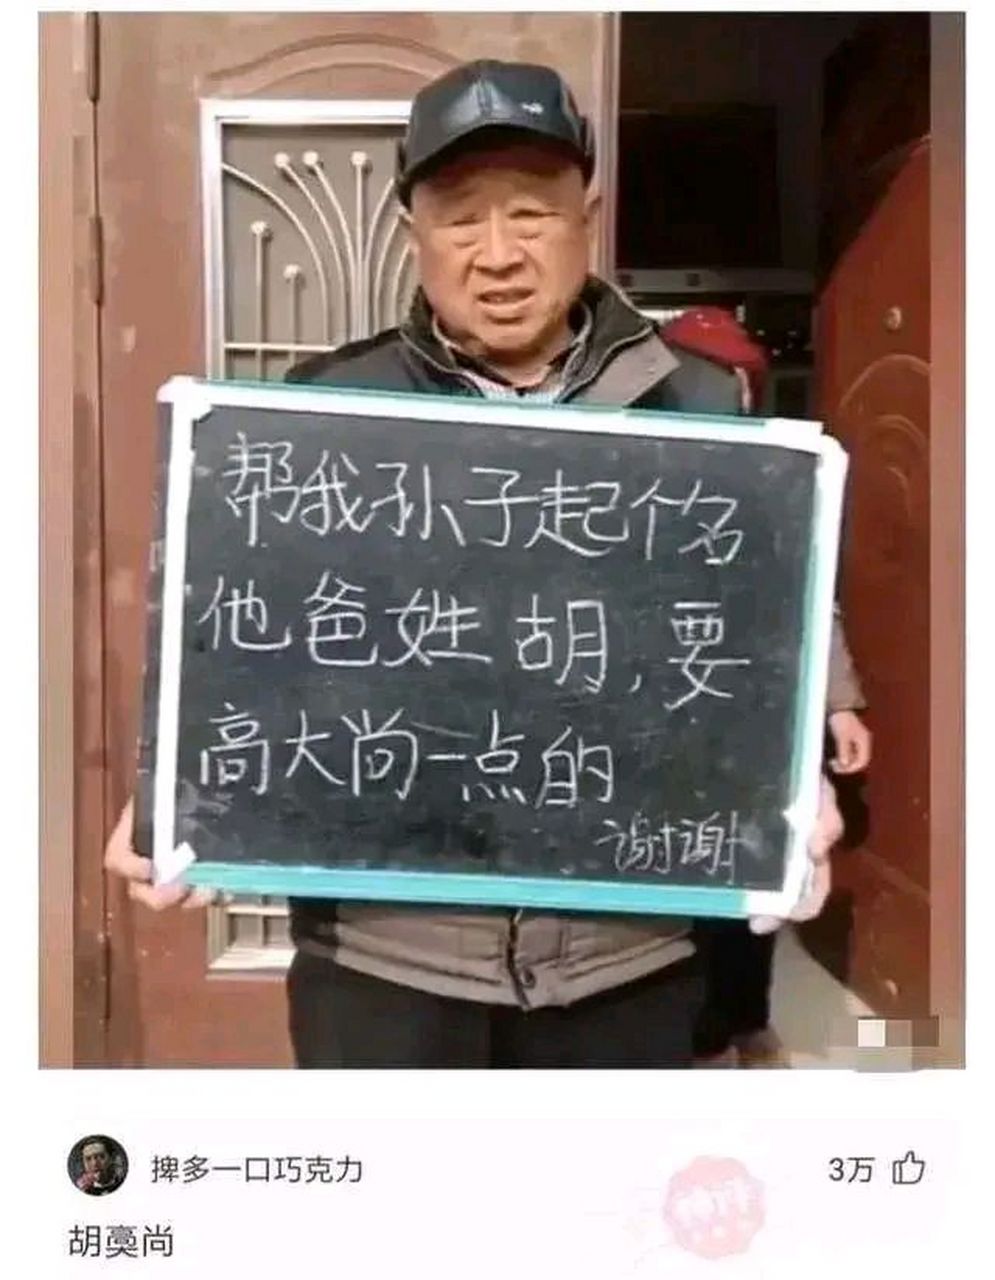 帮我孙子起个名
他爸姓胡,要
高大尚一点的
谢谢
捭多一口巧克力
3万
胡奠尚